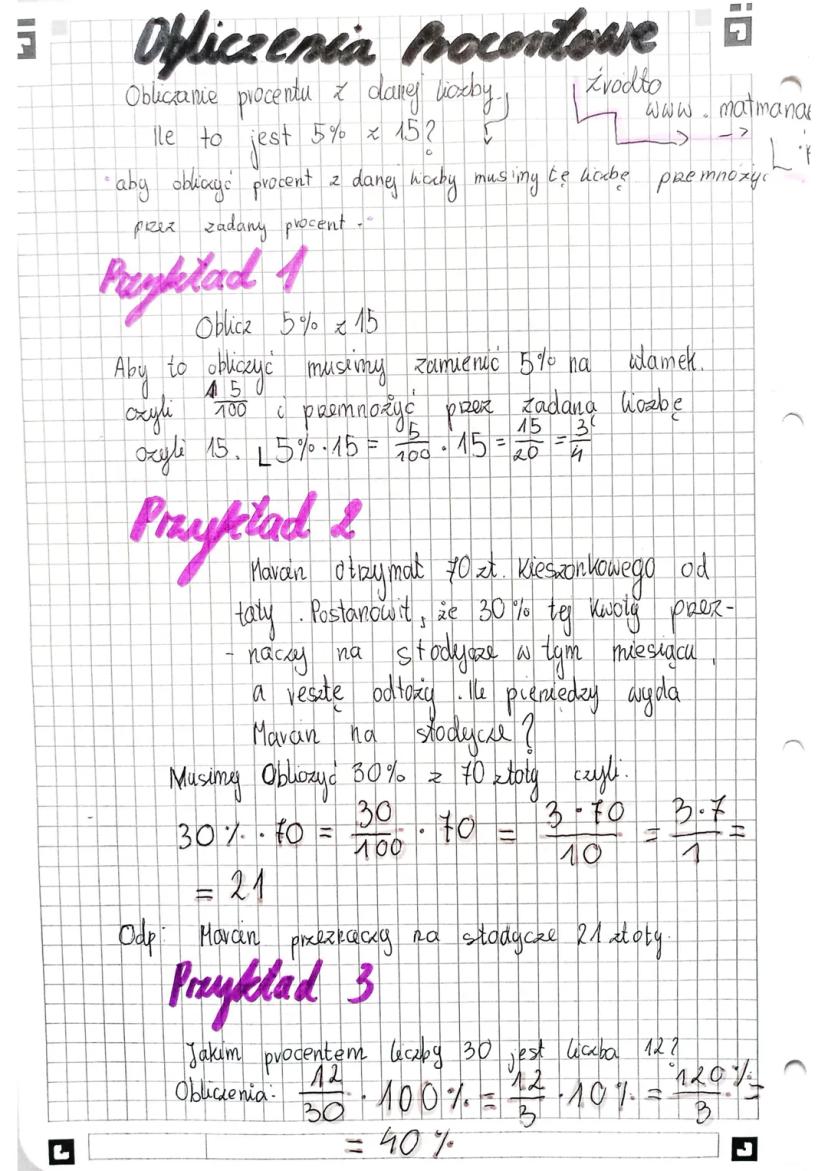 Obliczenia Procentowe
Obliczanie procentu z danej liczby.
źrodło
www.matmana
Ile to jest 5% z 15?
"aby obliczyć procent z danej liczby musimy tę liczbę przemnożyć
przez zadany procent."
Przykład 1
Oblicz 5% z 15
Aby to obliczyć musimy zamienić 5% na ułamek.
czyli 5/100 i przemnożyć przez zadaną liczbę
czyli 15. 5% · 15 = 5/100 · 15 = 15/20 = 3/4
Przykład 2
Marcin otrzymał 70 zł. kieszonkowego od
taty. Postanowił, że 30% tej kwoty przez-
- naczy na słodycze w tym miesiącu,
a resztę odłoży. Ile pieniędzy wyda
Marcin na słodycze?
Musimy Obliczyć 30% z 70 złoty czyli.
30% · 70 = 30/100 · 70 = 3·70/10 = 3·7/1 =
= 21
Odp: Marcin przeznaczy na słodycze 21 złoty.
Przykład 3
Jakim procentem liczby 30 jest liczba 12?
Obliczenia: 12/30 · 100% = 12/3 · 10% = 120%/3 =
= 40%